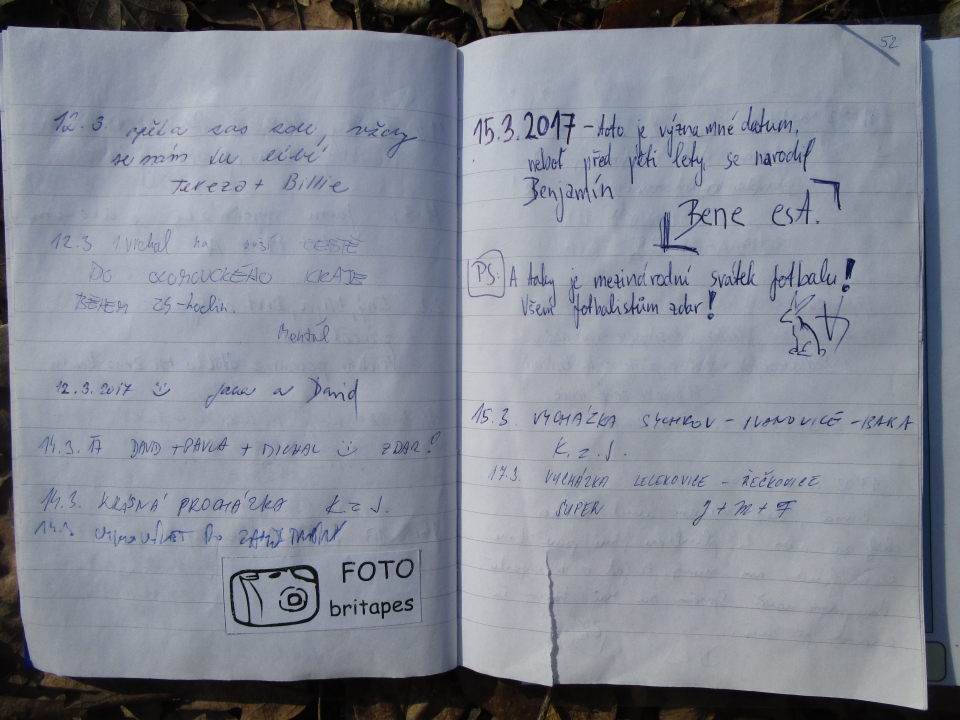 12.3 opětka zas zde, vždy
se nám tu líbí
Tereza + Billie
12.3 na cestě
DO OLOMOUCKÉHO KRAJE
BĚHEM 24-hodin.
Mentál
12.3.2017 :) Jana a David
14.3. 17 DAVID + PAVLA + MICHAL :) ZDAR!
14.3. KRÁSNÁ PROCHÁZKA K. z J.
14.3
FOTO
britapes
52
15.3.2017 - toto je významné datum,
neboť před pěti lety, se narodil
Benjamín
Bene est.
PS: A taky je mezinárodní svátek fotbalu!
Všem fotbalistům zdar!
15.3. VYCHÁZKA SÝCHROV - IVANOVICE - BABA
K. z. J.
17.3. VYCHÁZKA LELEKOVICE - ŘEČKOVICE
SUPER J + M + F